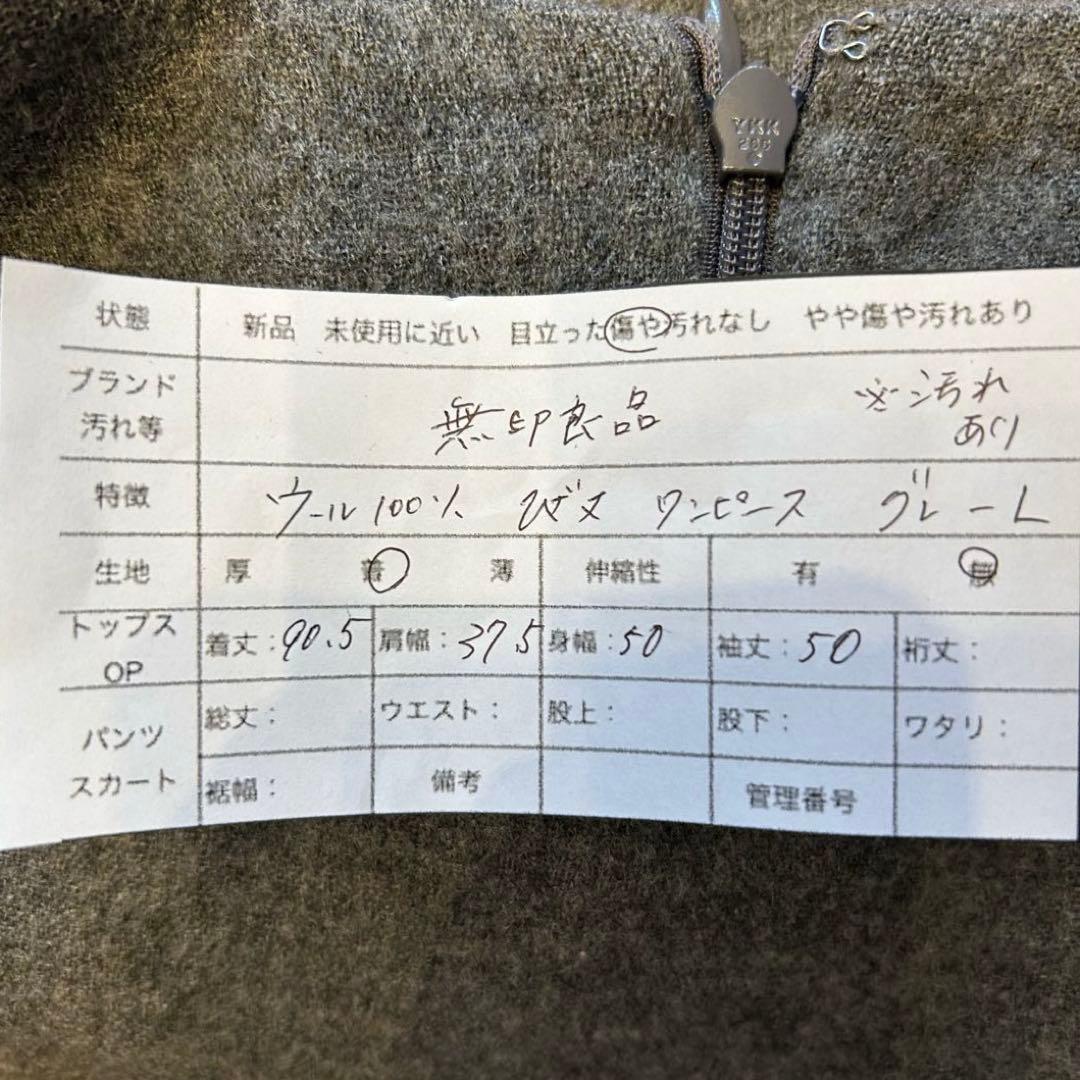 YKK
状態 新品 未使用に近い 目立った傷や汚れなし やや傷や汚れあり
ブランド
汚れ等
無印良品
※汚れ
あり
特徴 ウール100% ひざ丈 ワンピース グレー L
生地 厚 普 薄 伸縮性 有 無
トップス
OP
着丈:90.5 肩幅:37.5 身幅:50 袖丈:50 裄丈:
パンツ
スカート
総丈: ウエスト: 股上: 股下: ワタリ:
裾幅: 備考 管理番号